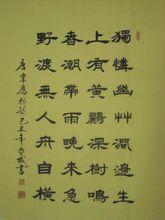 獨憐幽艸澗邊生
上有黃鸝深樹鳴
春潮帶雨晚來急
野渡無人舟自橫
唐韋應物詩己丑年書